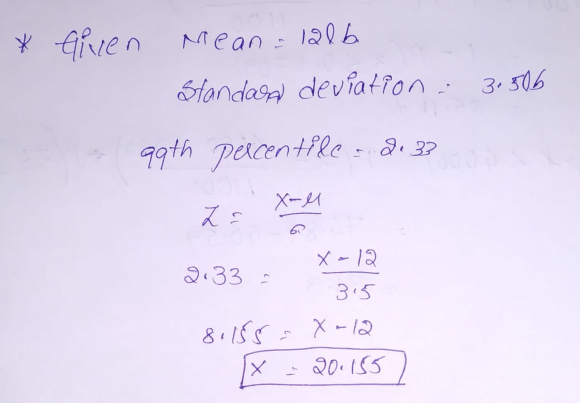 * Given Mean = 12lb
Standard deviation = 3.5lb
99th percentile = 2.33
Z = x-μ / σ
2.33 = x-12 / 3.5
8.155 = x-12
x = 20.155